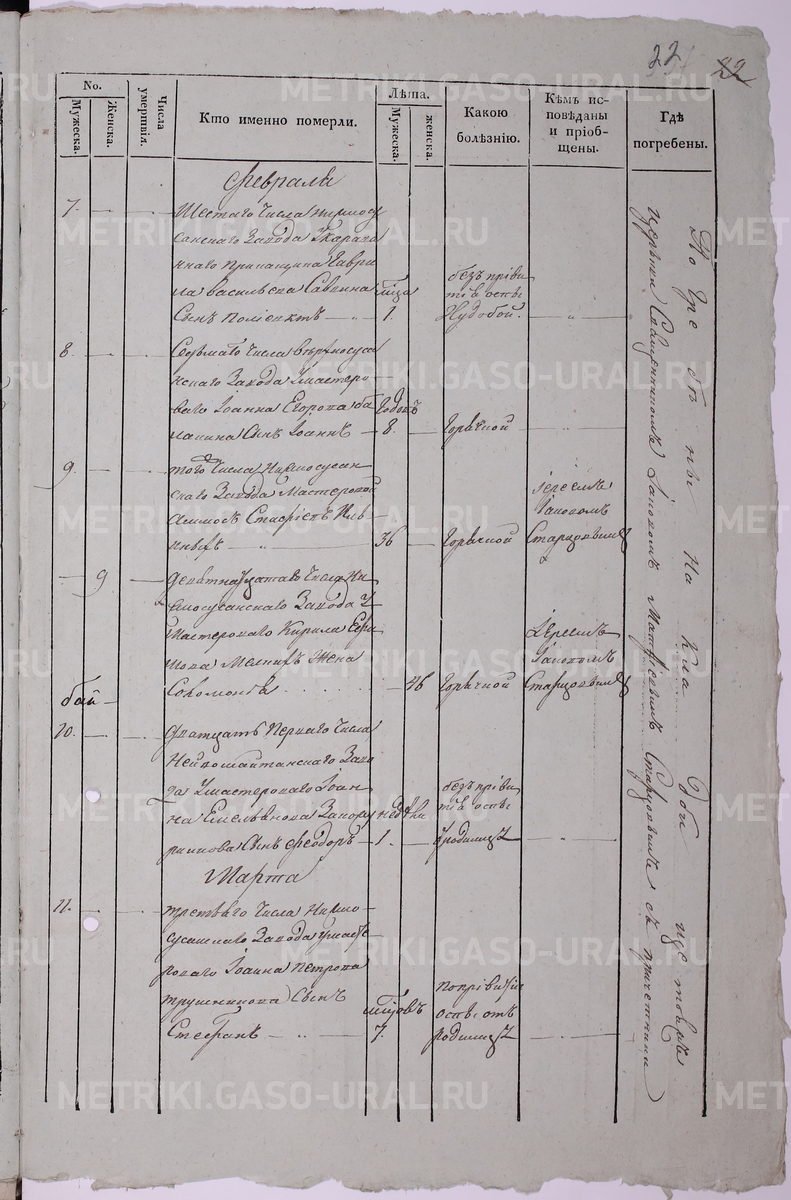 22
22
No.
Мужеска.
Женска.
Числа умертвія.
Кто именно померли.
Лѣта.
Мужеска.
женска.
Какою болѣзнію.
Кѣмъ исповѣданы и пріобщены.
Гдѣ погребены.
февраля
7.
Шестаго Числа Нижносу
санскаго Завода
Гаври
ла Васильева Саввина
Сынъ Поліектъ
1.
безъ приви
тія оспы
Худобой.
8.
Седьмаго Числа Верхносуса
нскаго Завода Умастеро
ваго Іоанна Егорова ба
лакина Сынъ Іоаннъ
Годовъ
8.
Горячкой
9.
того Числа Нижносусан
скаго Завода Мастеровой
36
Горячкой
Іереемъ
Іаковомъ
Старцовымъ
9
девятнадцатаго Числа Ни
жносусанскаго Завода У
Мастероваго Кирила Ефи
мова Жена
Соломонія
46
Горячкой
Іереемъ
Іаковомъ
Старцовымъ
10.
двадцать Перваго Числа
Нейвошайтанскаго Заво
да Умастероваго Іоан
на Емельянова
Сынъ феодоръ
недѣли
1.
безъ приви
тія оспы
Уродимца
Марта
11.
третьяго Числа Нижно
сусанскаго Завода Умасте
роваго Іоанна Петрова
трушникова Сынъ
Стефанъ
7.
оспы отъ
родимца
Погребены На Кладбище
Священникомъ Іаковомъ Матфіевымъ Старцовымъ съ причетники
METRIKI.GASO-URAL.RU